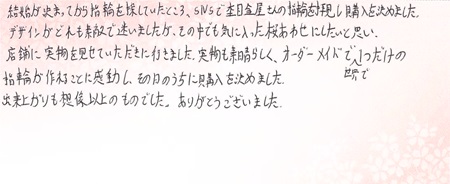 結婚が決まってから指輪を探していたところ、SNSで杢目金屋さんの指輪を拝見し購入を決めました。
デザインがどれも素敵で迷いましたが、その中でも気に入った桜あわせにしたいと思い、
店舗に実物を見せていただきに行きました。実物も素晴らしく、オーダーメイドで世界で1つだけの
指輪が作れることに感動し、その日のうちに購入を決めました。
出来上がりも想像以上のものでした。ありがとうございました。